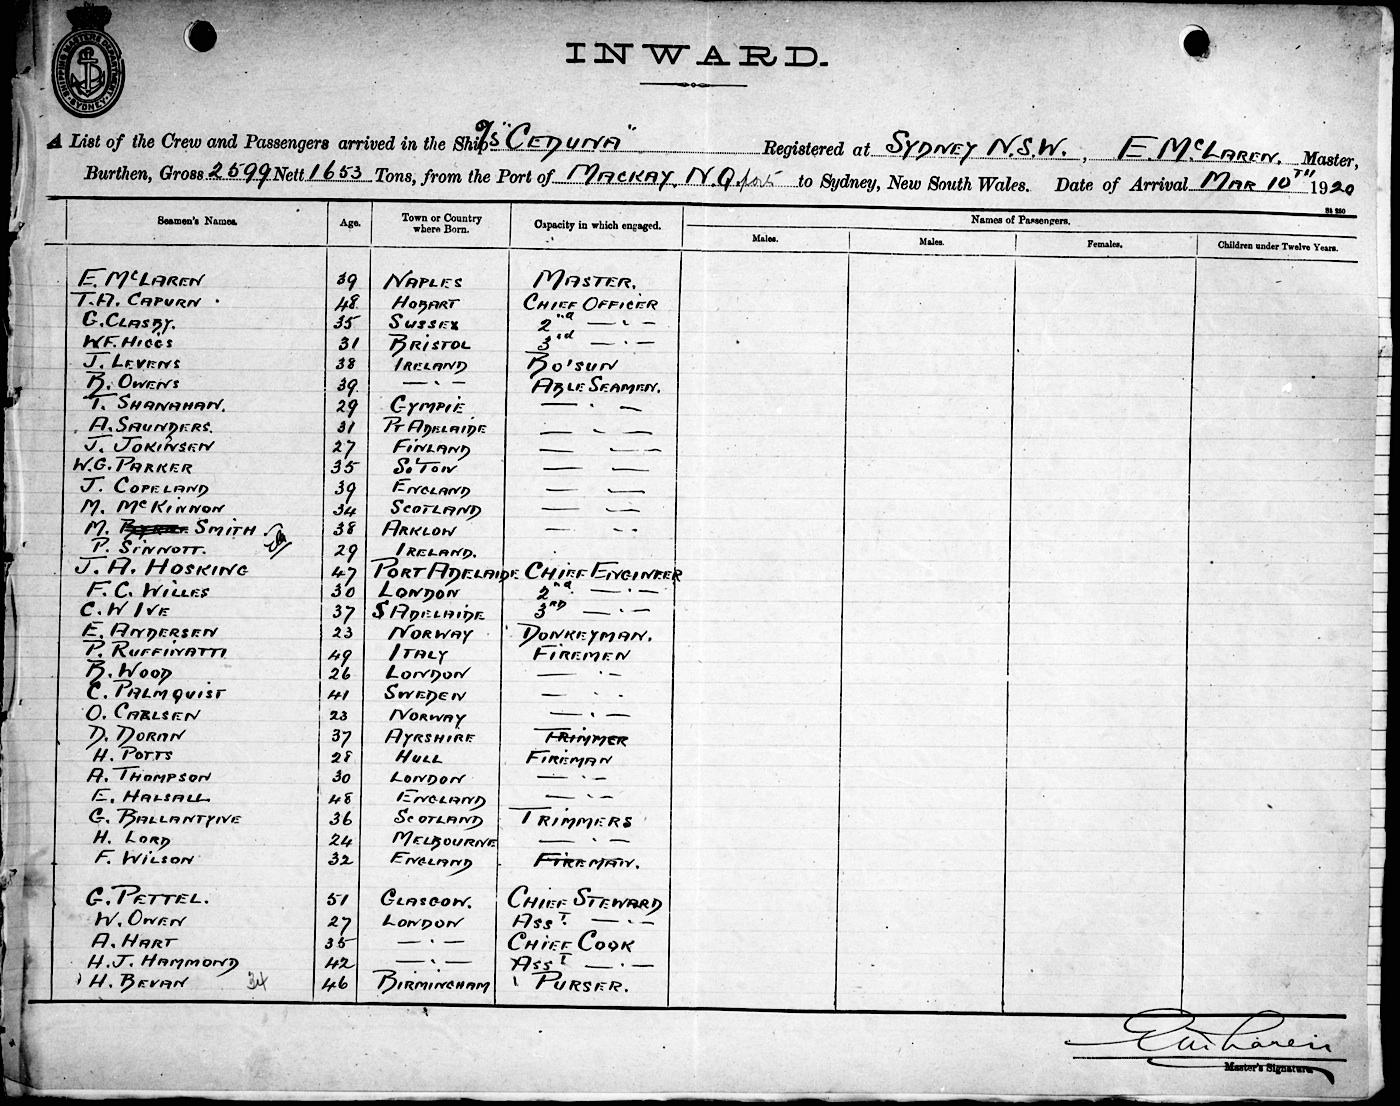 SHIPPING MASTERS DEPARTMENT SYDNEY
INWARD.
A List of the Crew and Passengers arrived in the Ship S/S "CEDUNA" Registered at SYDNEY N.S.W., E. McLAREN. Master,
Burthen, Gross 2599 Nett 1653 Tons, from the Port of MACKAY. N.Q. to Sydney, New South Wales. Date of Arrival MAR 10TH 1920
Seamen's Names. Age. Town or Country where Born. Capacity in which engaged. Names of Passengers.
Males. Males. Females. Children under Twelve Years.
E. McLAREN 39 NAPLES MASTER.
T.A. CAPURN 48 HOBART CHIEF OFFICER
G. CLASBY. 35 SUSSEX 2nd — " —
W.F. HIGGS 31 BRISTOL 3rd — " —
J. LEVENS 38 IRELAND BO'SUN
R. OWENS 39 — " — ABLE SEAMEN.
T. SHANAHAN. 29 GYMPIE — " —
A. SAUNDERS. 31 PT ADELAIDE — " —
J. JOKINSEN 27 FINLAND — —
W.G. PARKER 35 SO'TON — —
J. COPELAND 39 ENGLAND — —
M. McKINNON 34 SCOTLAND — —
M. SMITH 38 ARKLOW — " —
P. SINNOTT. 29 IRELAND.
J.A. HOSKING 47 PORT ADELAIDE CHIEF ENGINEER
F.C. WILLES 30 LONDON 2nd — " —
C.W IVE 37 S ADELAIDE 3RD — " —
E. ANDERSEN 23 NORWAY DONKEYMAN.
P. RUFFINATTI 49 ITALY FIREMEN
R. WOOD 26 LONDON — " —
C. PALMQUIST 41 SWEDEN — " —
O. CARLSEN 23 NORWAY — " —
D. DORAN 37 AYRSHIRE TRIMMER
H. POTTS 28 HULL FIREMAN
A. THOMPSON 30 LONDON — " —
E. HALSALL 48 ENGLAND — " —
G. BALLANTYNE 36 SCOTLAND TRIMMERS
H. LORD 24 MELBOURNE — " —
F. WILSON 32 ENGLAND FIREMAN.
G. PETTEL. 51 GLASGOW. CHIEF STEWARD
W. OWEN 27 LONDON ASST. — " —
A. HART 35 — " — CHIEF COOK
H.J. HAMMOND 42 — " — ASST — " —
H. BEVAN 34 46 BIRMINGHAM PURSER.
E McLaren
Master's Signature